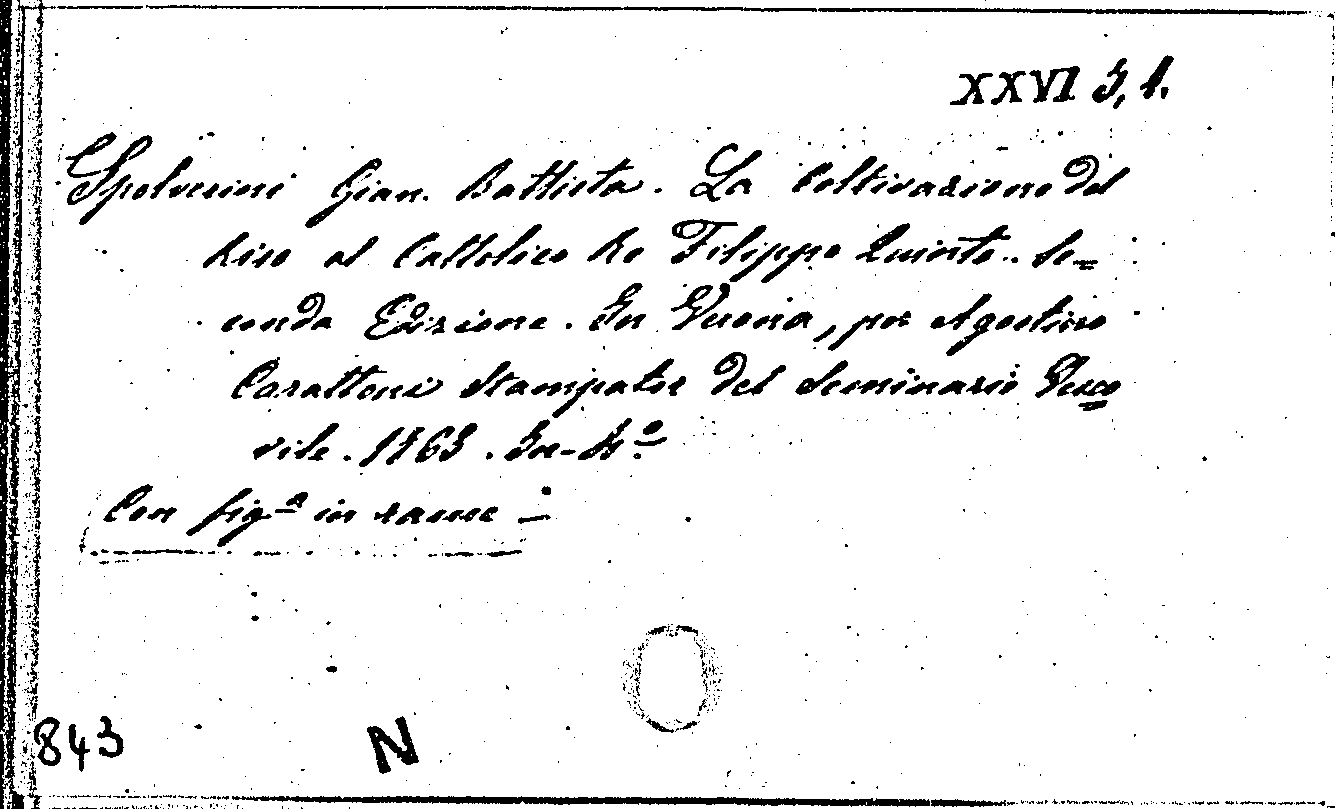 XXVI 3, 1.
Spolverini Gian. Battista. La Coltivazione del
Riso al Cattolico Re Filippo Quinto. Se=
conda Edizione. In Verona, per Agostino
Carattoni Stampator del Seminario Vesco
vile. 1763. In-4º
Con figª in rame
843
N